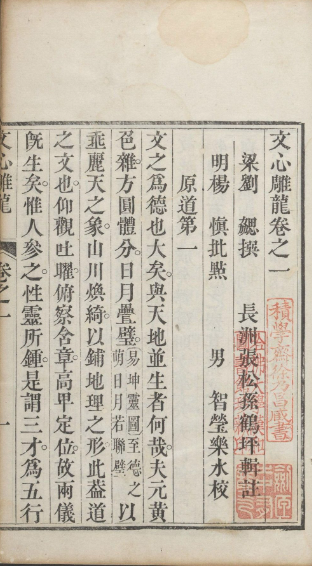 文心雕龍卷之一
梁劉　勰撰　　長洲張松孫鶴坪輯註
明楊　慎批㸃　　男　智瑩樂水校
原道第一
文之爲德也大矣與天地並生者何哉夫元黃
色雜方圓體分日月疊璧易坤靈圖至德之萌日月若聯璧以
垂麗天之象山川煥綺以鋪地理之形此葢道
之文也仰觀吐曜俯察含章高卑定位故兩儀
旣生矣惟人參之性靈所鍾是謂三才爲五行
文心雕龍
卷之一
一
積學齋徐乃昌藏書